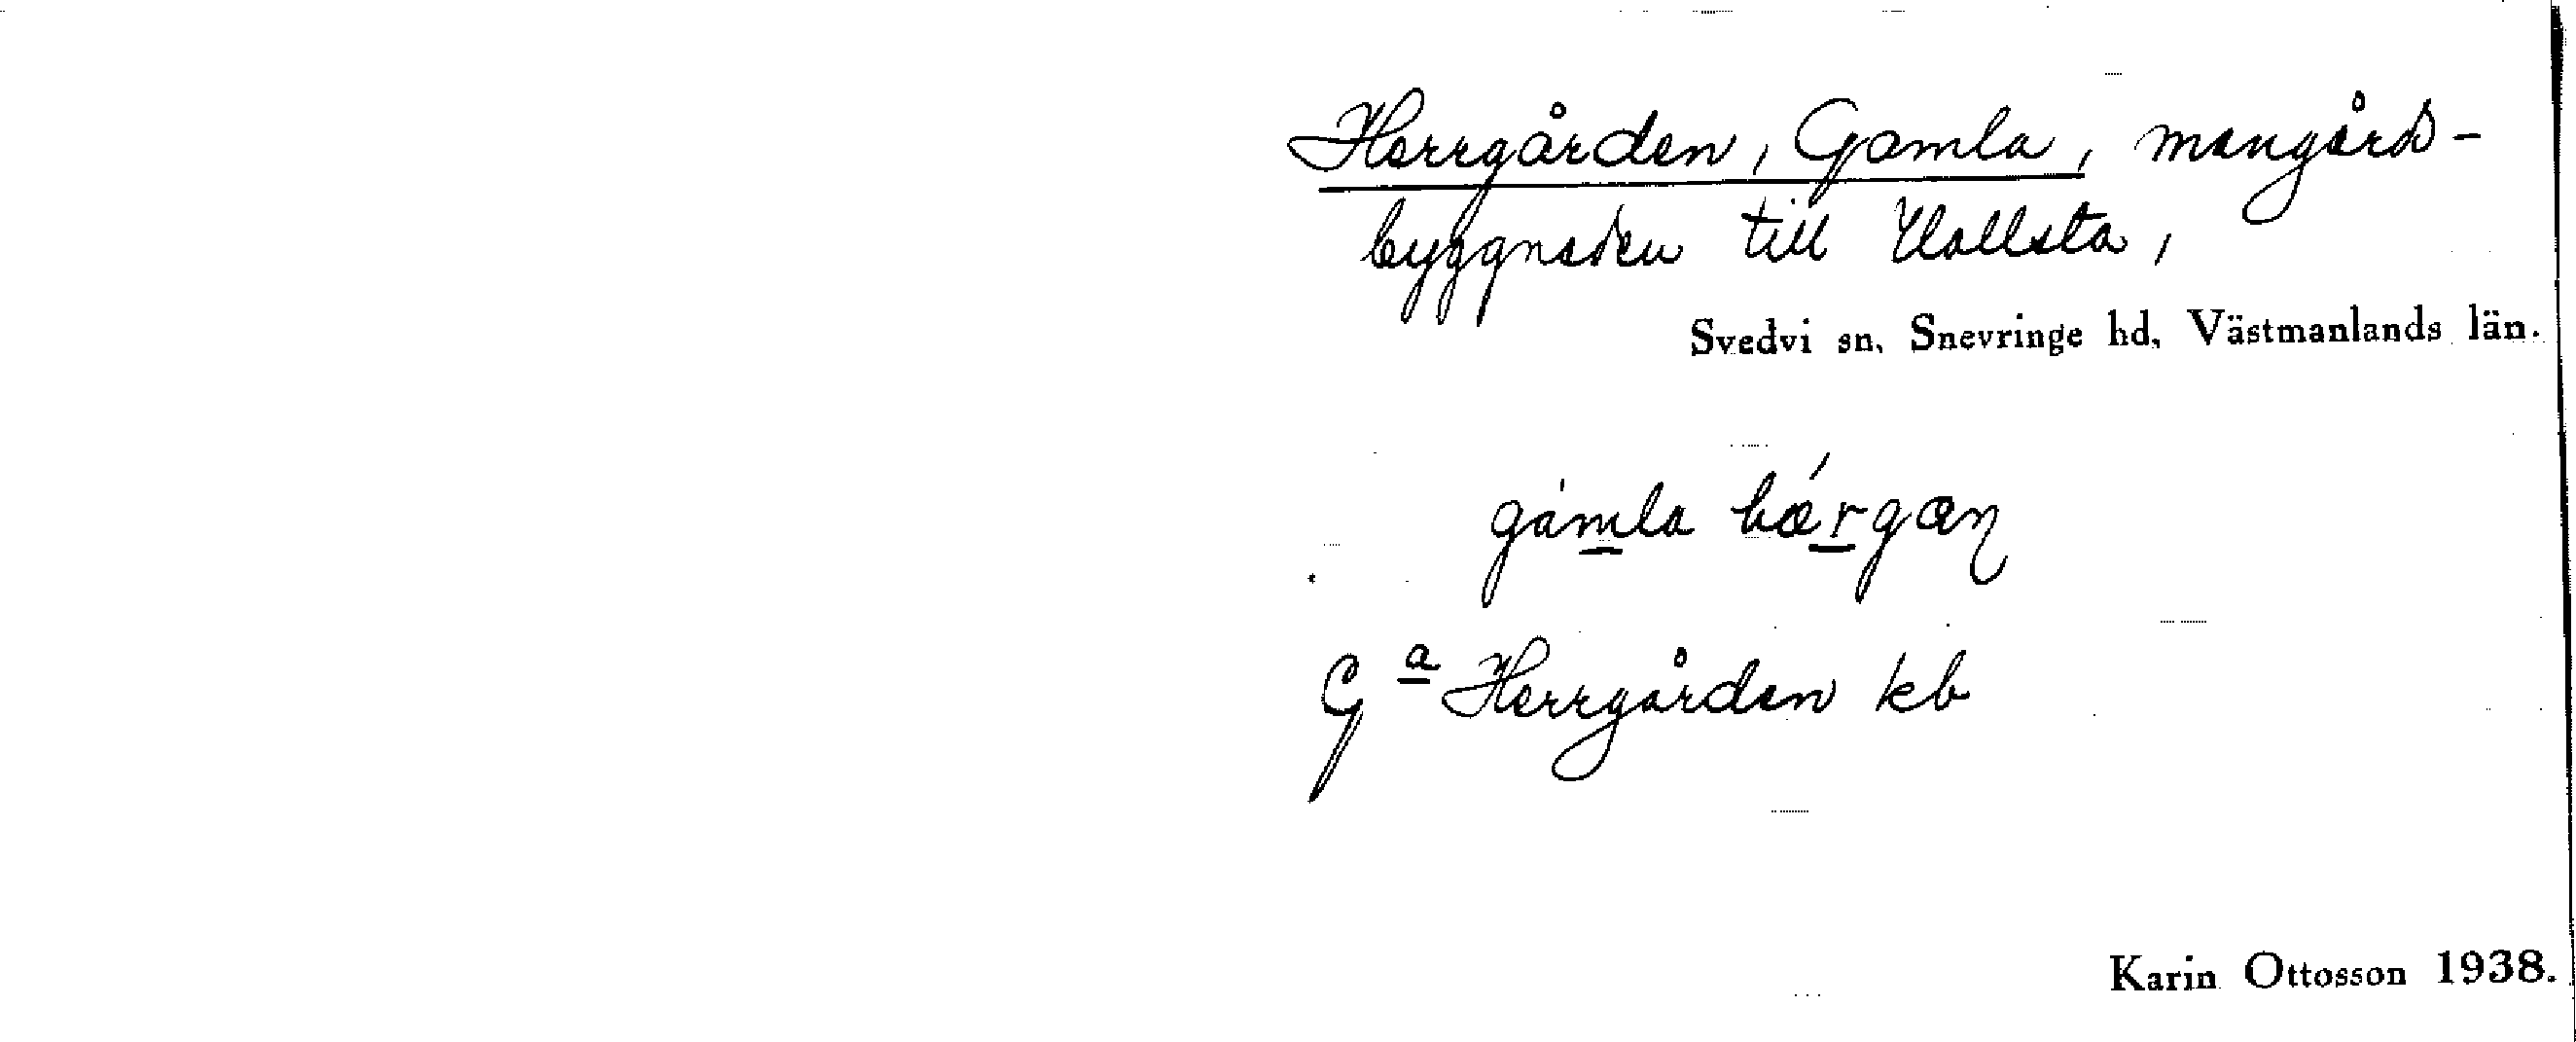 Herrgården, Gamla, mangårds-
byggnaden till Hallsta,
Svedvi sn, Snevringe hd, Västmanlands län.
gàmla hǽrgaɳ
G<u>a</u> Herrgården kb
Karin Ottosson 1938.